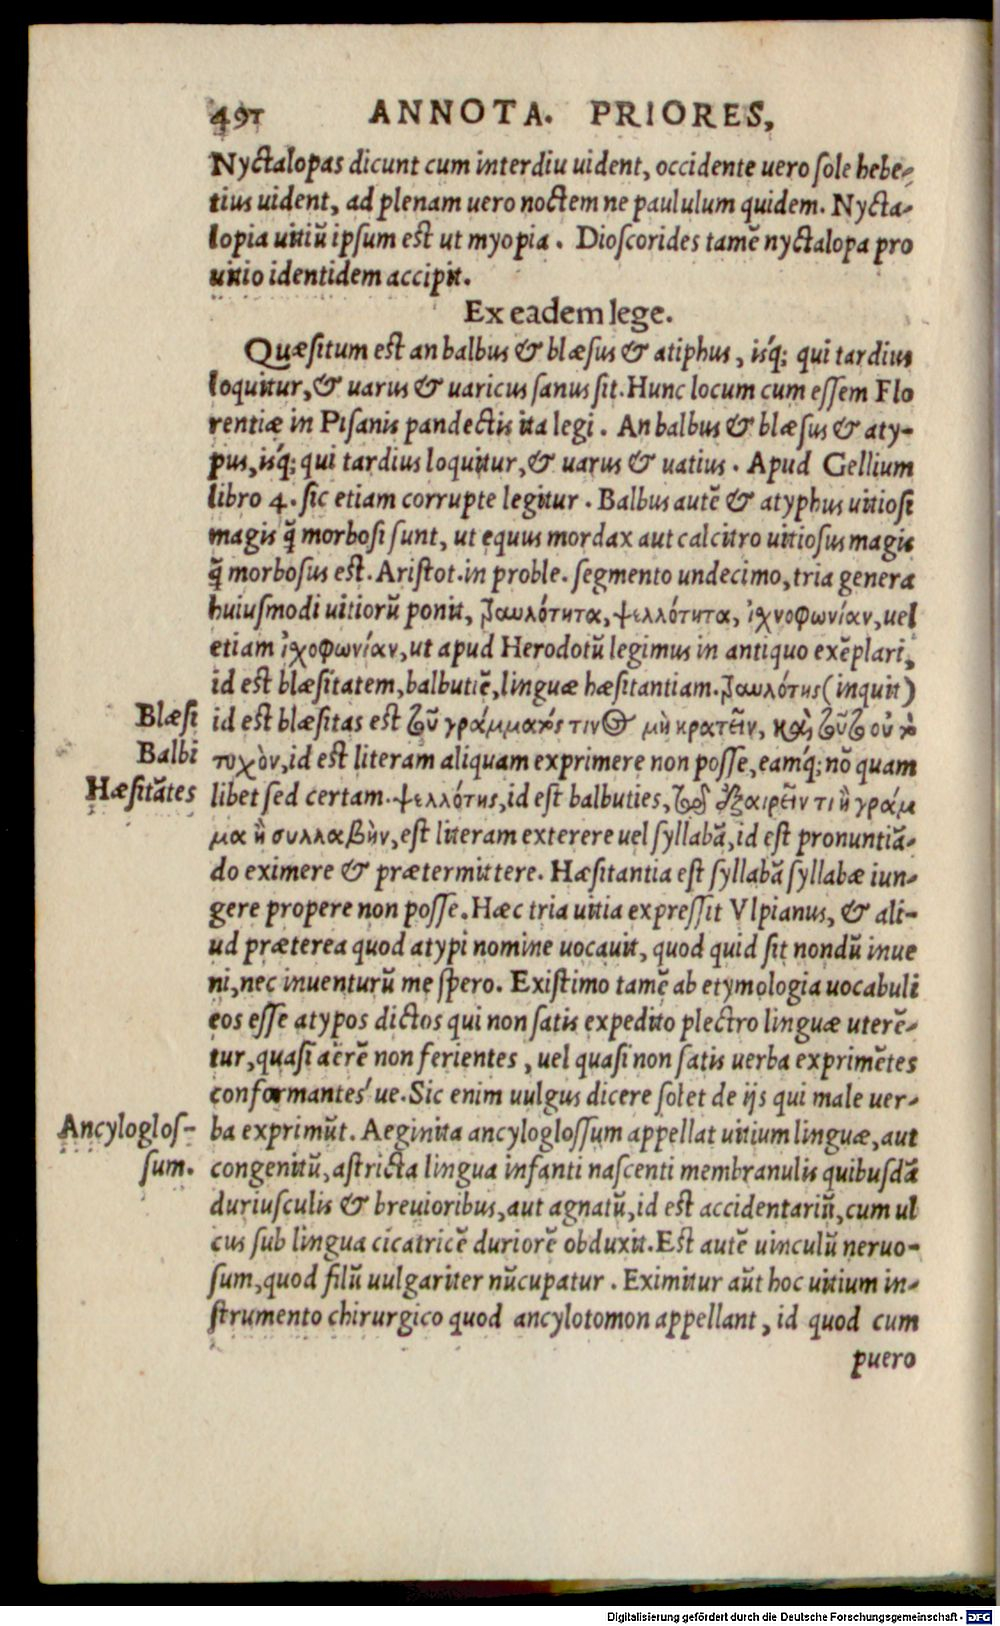 491 ANNOTA. PRIORES,
Nyctalopas dicunt cum interdiu uident, occidente uero sole hebe-
tius uident, ad plenam uero noctem ne paululum quidem. Nycta-
lopia uitiũ ipsum est ut myopia. Dioscorides tamẽ nyctalopa pro
uitio identidem accipit.
Ex eadem lege.
Quæsitum est an balbus & blæsus & atiphus, isq́; qui tardius
loquitur, & uarus & uaricus sanus sit. Hunc locum cum essem Flo
rentiæ in Pisanis pandectis ita legi. An balbus & blæsus & aty-
pus, isq́; qui tardius loquitur, & uarus & uatius. Apud Gellium
libro 4. sic etiam corrupte legitur. Balbus autẽ & atyphus uitiosi
magis q̃ morbosi sunt, ut equus mordax aut calcitro uitiosus magis
q̃ morbosus est. Aristot. in proble. segmento undecimo, tria genera
huiusmodi uitiorũ ponit, τραυλότητα, ψελλότητα, ἰχνοφωνίαν, uel
etiam ἰχοφωνίαν, ut apud Herodotũ legimus in antiquo exẽplari,
id est blæsitatem, balbutiẽ, linguæ hæsitantiam. τραυλότης (inquit)
Blæsi id est blæsitas est τοῦ γράμματός τινος μὴ κρατεῖν, καὶ τοῦτο οὐ τὸ
Balbi τυχὸν, id est literam aliquam exprimere non posse, eamq́; nõ quam
Hæsitãtes libet sed certam. ψελλότης, id est balbuties, τοῦ ἐξαιρεῖν τι ἢ γράμ
μα ἢ συλλαβὴν, est literam exterere uel syllabã, id est pronuntiã-
do eximere & prætermittere. Hæsitantia est syllabã syllabæ iun-
gere propere non posse. Hæc tria uitia expressit Vlpianus, & ali-
ud præterea quod atypi nomine uocauit, quod quid sit nondũ inue
ni, nec inuenturũ me spero. Existimo tamẽ ab etymologia uocabuli
eos esse atypos dictos qui non satis expedito plectro linguæ uterẽ-
tur, quasi aërẽ non ferientes, uel quasi non satis uerba exprimẽtes
conformantes ue. Sic enim uulgus dicere solet de ijs qui male uer-
Ancyloglos- ba exprimũt. Aeginita ancyloglossum appellat uitium linguæ, aut
sum. congenitũ, astricta lingua infanti nascenti membranulis quibusdã
duriusculis & breuioribus, aut agnatũ, id est accidentariũ, cum ul
cus sub lingua cicatricẽ duriorẽ obduxit. Est autẽ uinculũ neruo-
sum, quod filũ uulgariter nũcupatur. Eximitur aũt hoc uitium in-
strumento chirurgico quod ancylotomon appellant, id quod cum
puero
Digitalisierung gefördert durch die Deutsche Forschungsgemeinschaft - DFG